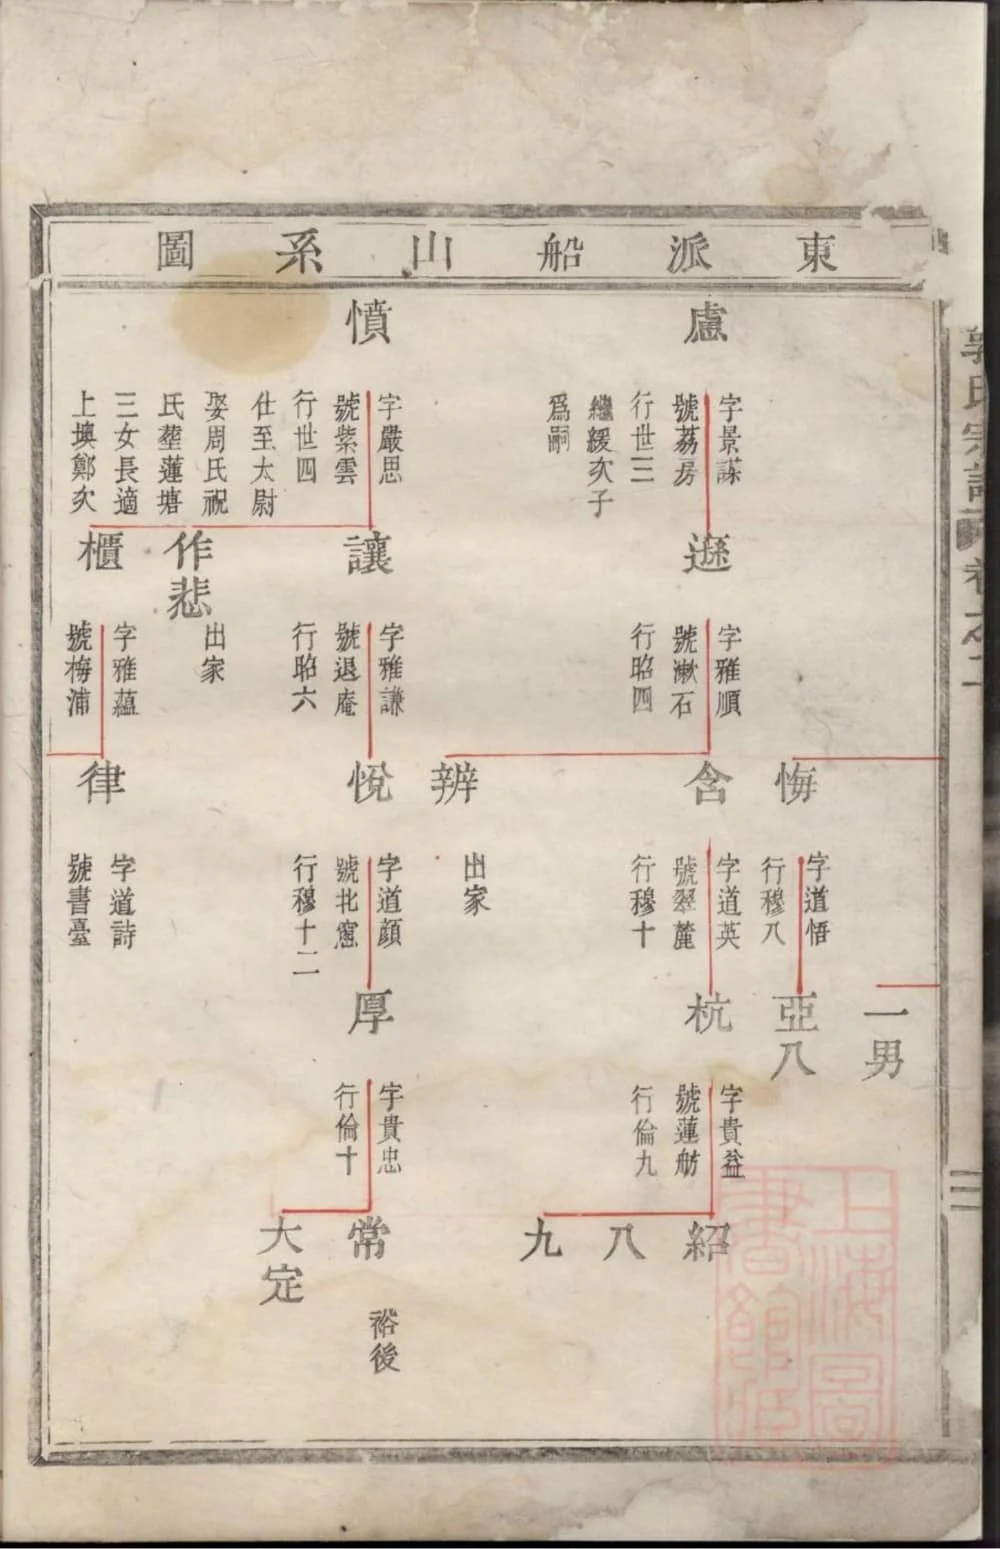 東派船山系圖
慮
字景謀
號荔房
行世三
繼緩次子
爲嗣
憤
字嚴思
號紫雲
行世四
仕至太尉
娶周氏祝
氏塟蓮塘
三女長適
上墺鄭次
遜
字雅順
號漱石
行昭四
讓
字雅謙
號退庵
行昭六
作悲
出家
櫃
字雅蘊
號梅浦
悔
字道悟
行穆八
含
字道英
號翠麓
行穆十
辨
出家
悅
字道顔
號北窻
行穆十二
律
字道詩
號書臺
一男
亞八
杭
字貴益
號蓮舫
行倫九
厚
字貴忠
行倫十
紹
八
九
常
裕後
大定
郭氏宗譜
卷之二
三
上海圖
書館藏